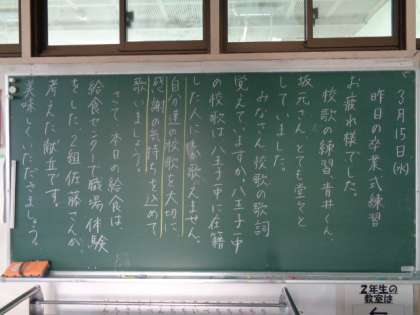 3月15日(水)
昨日の卒業式練習
お疲れ様でした。
校歌の練習、青井くん、
坂元さん、とても堂々と
していました。
みなさん、校歌の歌詞
覚えていますか。八王子一中
の校歌は、八王子一中に在籍
した人にしか歌えません。
自分達の校歌を大切に、
感謝の気持ちを込めて
歌いましょう。
さて、本日の給食は、
給食センターで職場体験
をした、2組佐藤さんが
考えた献立です。
美味しくいただきましょう。
2年生の
教室は